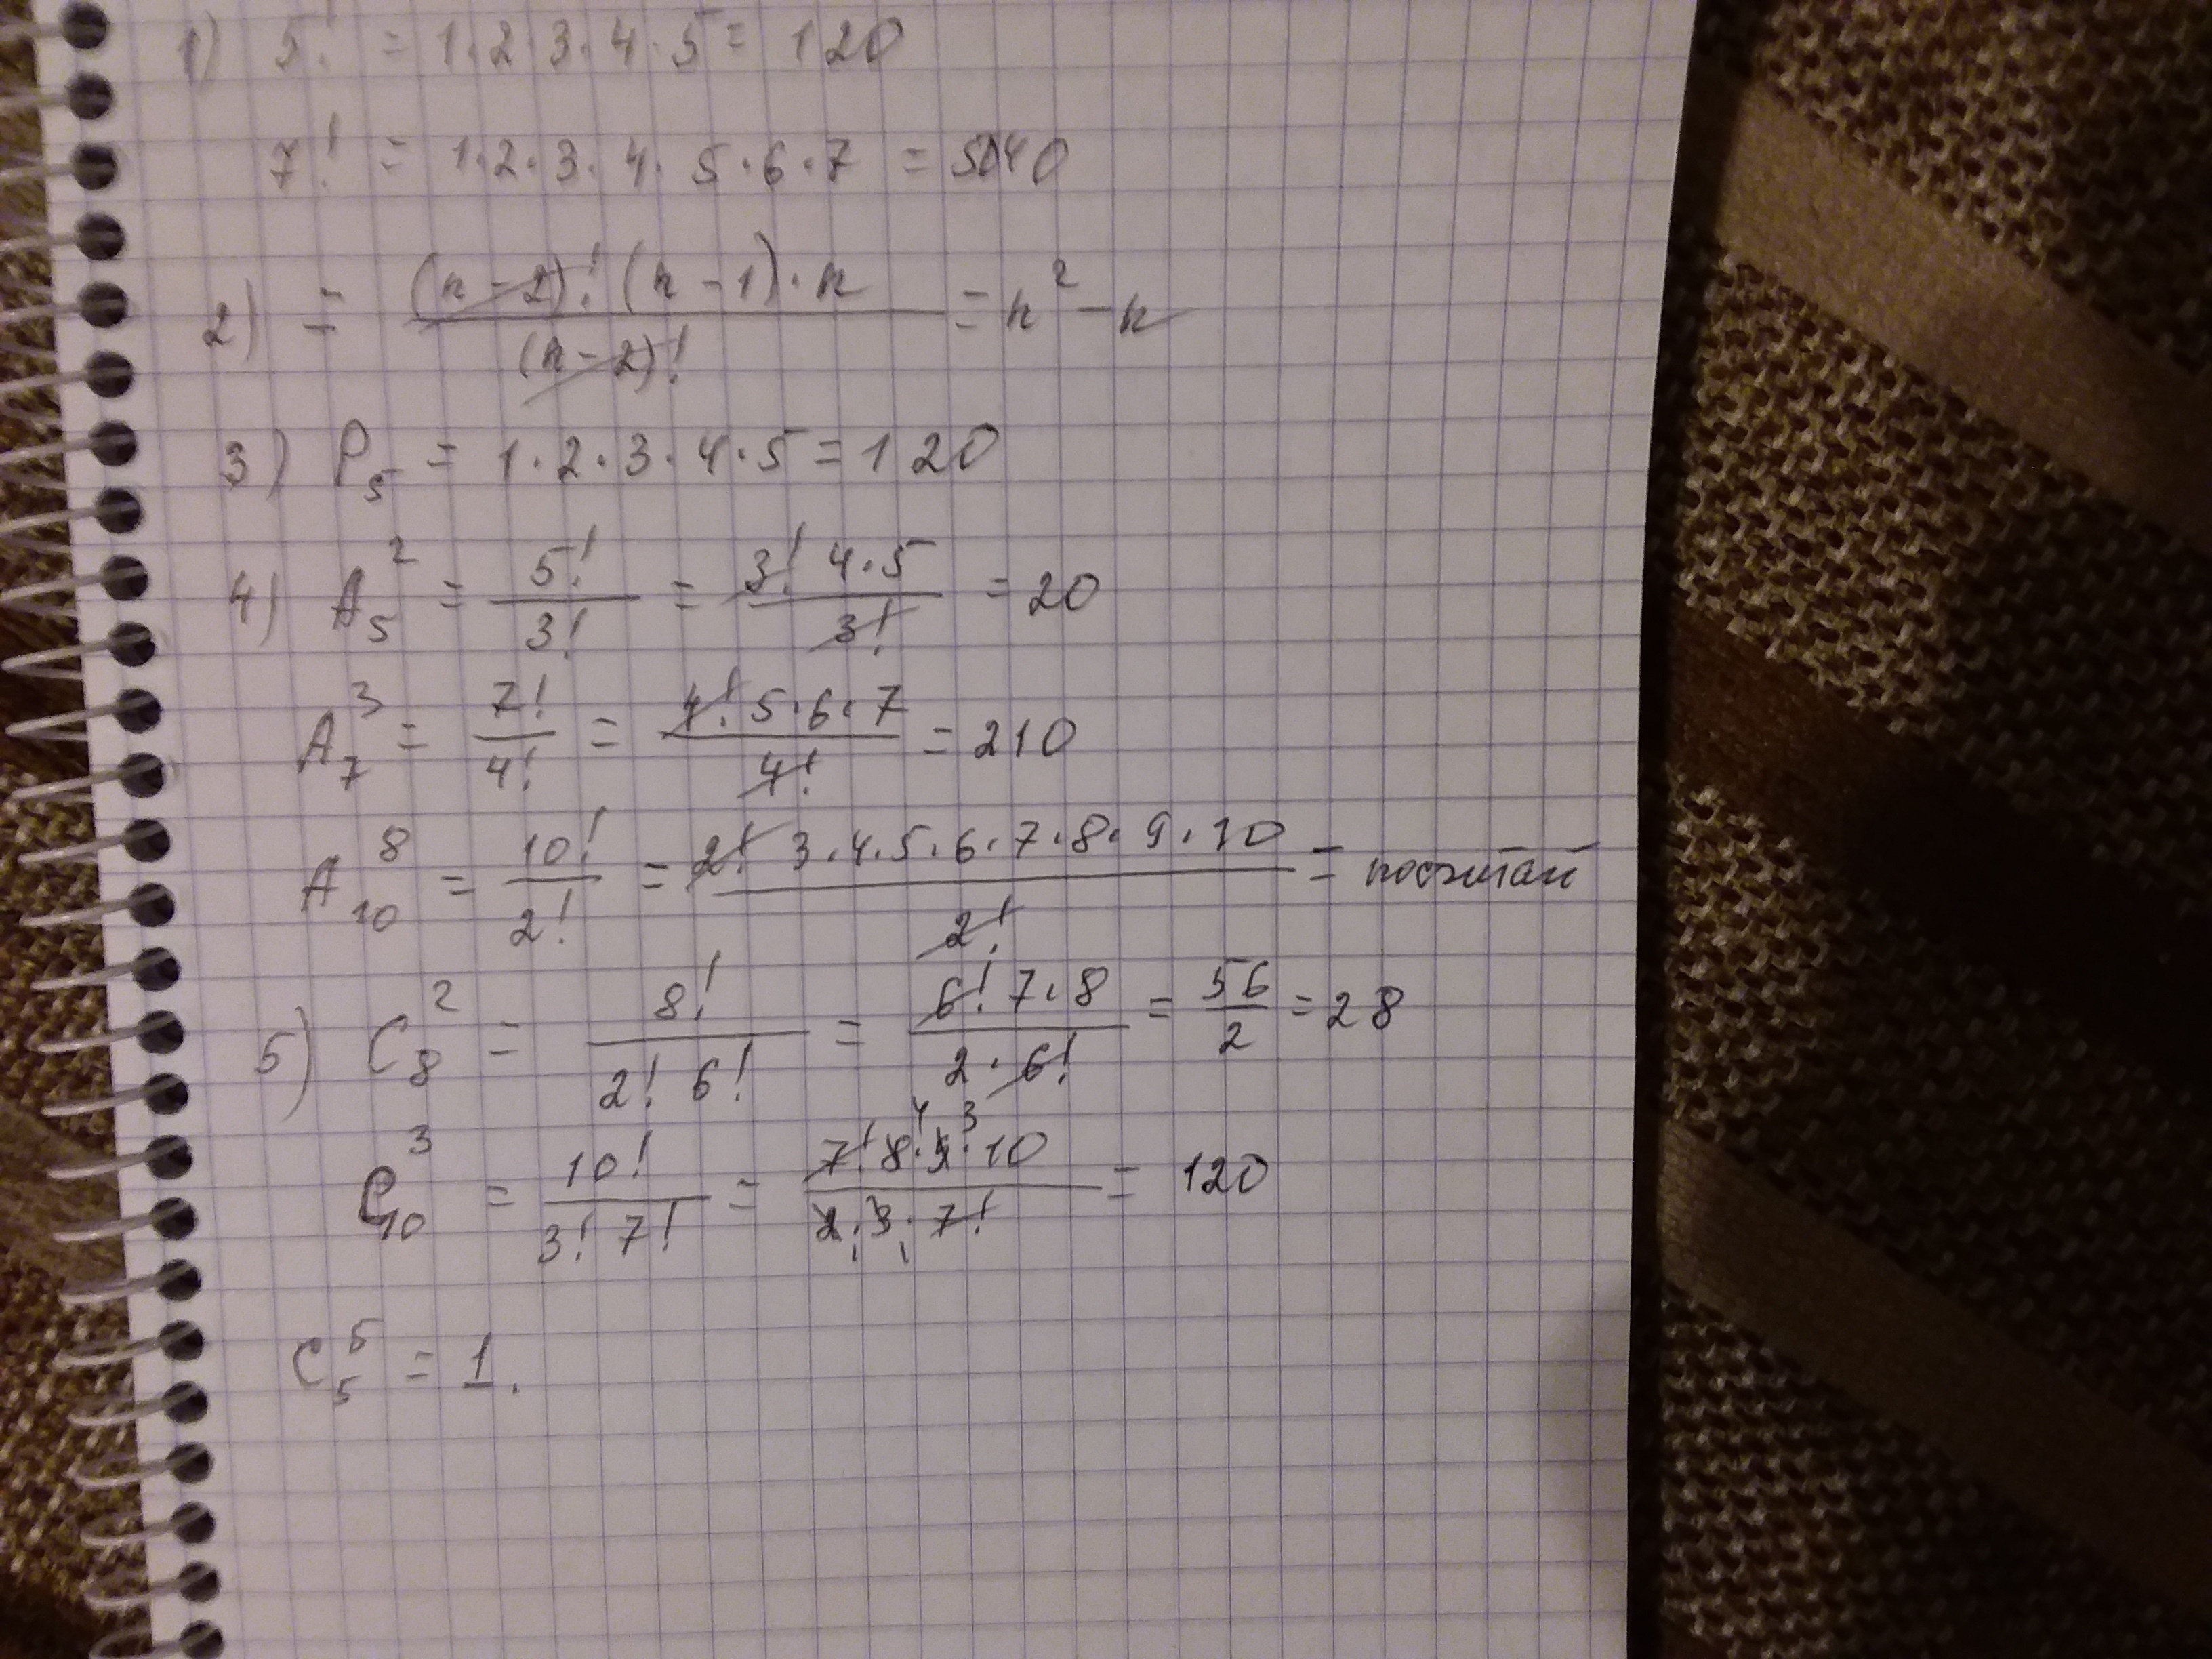 1) 5! = 1·2·3·4·5 = 120
7! = 1·2·3·4·5·6·7 = 5040
2) = (n-2)! (n-1)·n / (n-2)! = n² - n
3) P₅ = 1·2·3·4·5 = 120
4) A₅² = 5! / 3! = 3! 4·5 / 3! = 20
A₇³ = 7! / 4! = 4! 5·6·7 / 4! = 210
A₁₀⁸ = 10! / 2! = 2! 3·4·5·6·7·8·9·10 / 2! = посчитай
5) C₈² = 8! / 2! 6! = 6! 7·8 / 2·6! = 56 / 2 = 28
C₁₀³ = 10! / 3! 7! = 7! 8·9·10 / 2·3·7! = 120
C₅⁵ = 1.